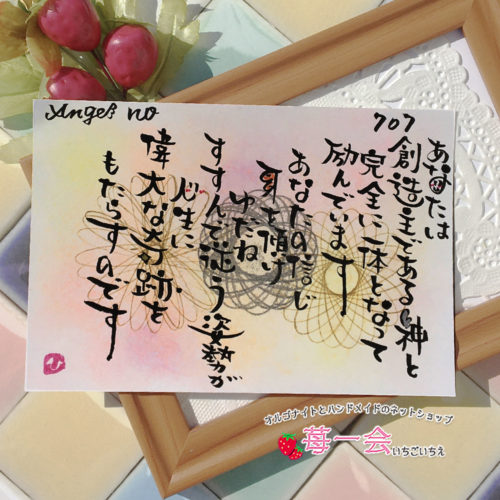 Angel no
707
あなたは
創造主である神と
完全に一体となって
励んでいます
あなたの信じ
耳を傾け
ゆだね
すすんで従う姿勢が
人生に
偉大な奇跡を
もたらすのです
オルゴナイトとハンドメイドのネットショップ
苺一会いちごいちえ